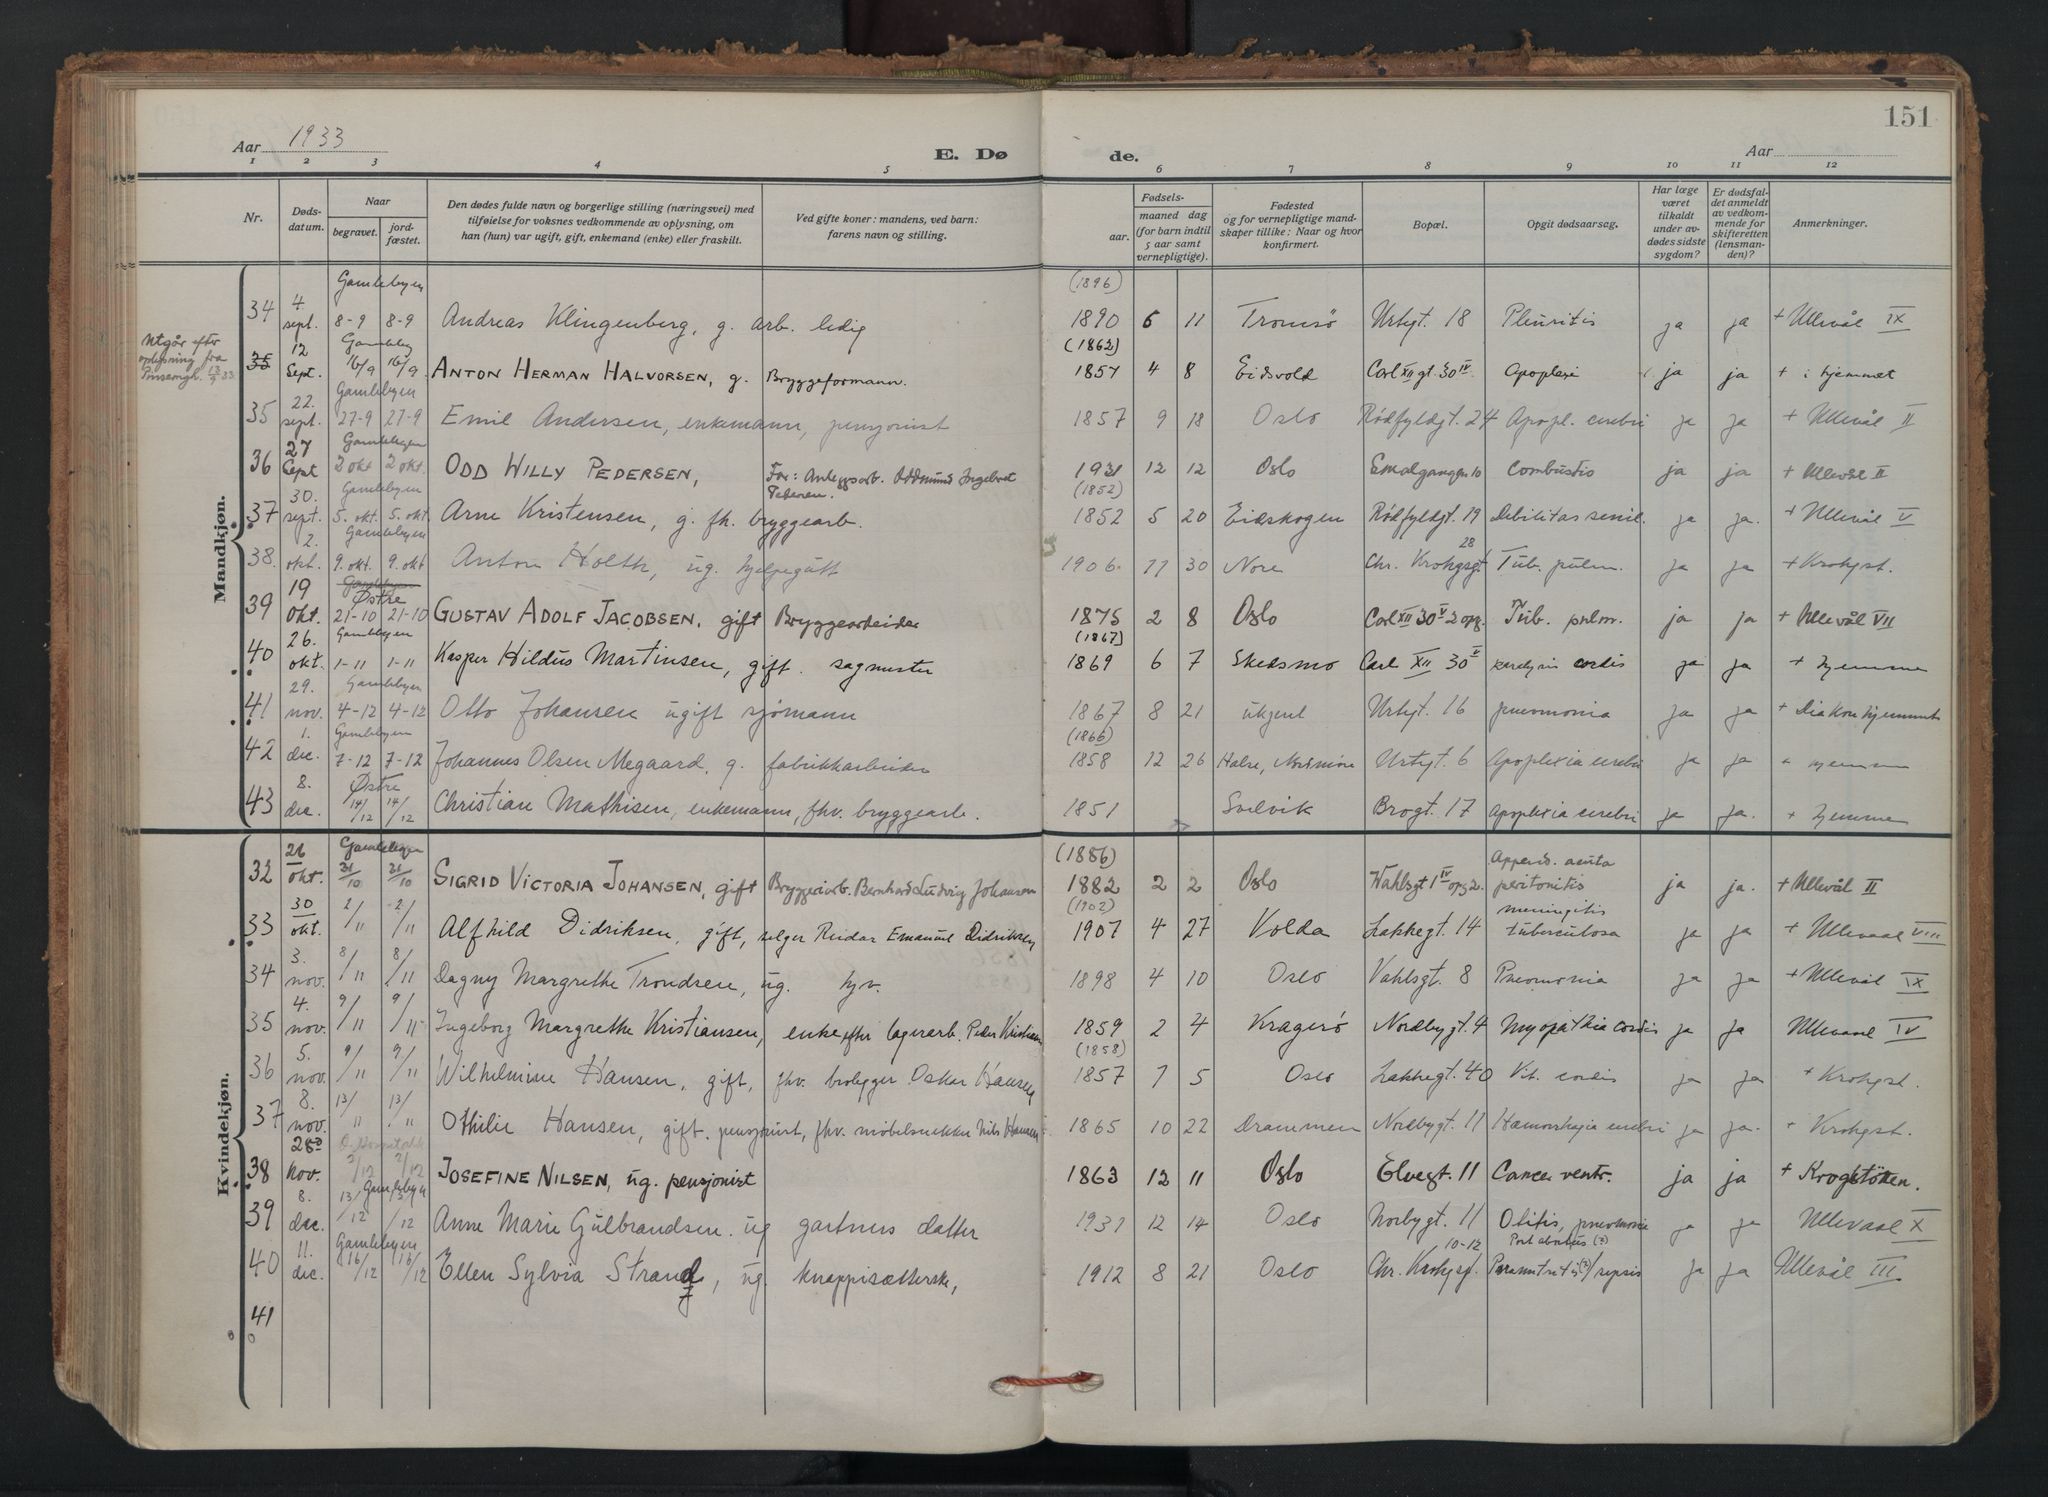 151
Aar 1933
E. Dø de.
Aar
1 2 3 4 5 6 7 8 9 10 11 12
Nr.
Døds-datum.
Naar
begravet.
jord-fæstet.
Den dødes fulde navn og borgerlige stilling (næringsvei) med tilføielse for voksnes vedkommende av oplysning, om han (hun) var ugift, gift, enkemand (enke) eller fraskilt.
Ved gifte koner: mandens, ved barn: farens navn og stilling.
Fødsels-
aar.
maaned dag
(for barn indtil 5 aar samt vernepligtige).
Fødested og for vernepligtige mandskaper tillike: Naar og hvor konfirmert.
Bopæl.
Opgit dødsaarsag.
Har læge været tilkaldt under avdødes sidste sygdom?
Er dødsfaldet anmeldt av vedkommende for skifteretten (lensmanden)?
Anmerkninger.
Mandkjøn.
Gamlebyen (1896)
34 4 sept. 8-9 8-9 Andreas Klingenberg, g. arb. ledig 1890 6 11 Tromsø Urtegt. 18 Pleuritis ja ja + Ullevål IX
Utgår efter oplysning fra 13/9 33
Gamleby (1862)
35 12 Sept. 16/9 16/9 ANTON HERMAN HALVORSEN, g. Bryggeformann. 1857 4 8 Eidsvold Carl XII gt. 30 IV Apoplexi ja ja + i hjemmet
Gamlebyen
35 22. sept. 27-9 27-9 Emil Andersen, enkemann, pensjonist 1857 9 18 Oslo Rødfyldgt. 24 Apopl. cerebri ja ja + Ullevål II
Gamlebyen
36 27 Sept 2 okt. 2 okt. ODD WILLY PEDERSEN, Far: Anleggsarb. Oddmund Ingebret Pedersen. 1931 12 12 Oslo Emalgangen 10 Combustio ja ja + Ullevål II
Gamlebyen (1852)
37 30. sept. 5. okt. 5. okt. Arne Kristensen, g. fh. bryggearb. 1852 5 20 Eidskogen Rødfyldgt. 19 Debilitas senil. ja ja. + Ullevål V
Gamlebyen
38. 2. okt. 9. okt. 9. okt Anton Holth, ug. hjelpegutt 1906 11 30 Nore Chr. Krohgsgt. 28 Tub. pulm. ja ja + Krohgst.
Gamlebyen Østre
39 19 Okt. 21-10 21-10 GUSTAV ADOLF JACOBSEN, gift Bryggearbeider 1875 2 8 Oslo Carl XII 30 V 2 opg. Tub. pulm. ja ja + Ullevål VII
Gamlebyen (1867)
40 26. okt. 1-11 1-11 Kasper Hildus Martinsen, gift. sagmester 1869 6 7 Skedsmo Carl XII 30 V paralysis cordis ja ja + hjemme
Gamlebyen
41 29. nov. 4-12 4-12 Otto Johansen ugift sjømann 1867 8 21 ukjent Urtegt. 16 pneumonia ja ja + Diakonhjemmet
Gamlebyen (1866)
42 1. dec. 7-12 7-12 Johannes Olsen Megaard, g. fabrikkarbeider 1858 12 26 Halse, Nordmøre Urtegt. 6 Apoplexia cerebri ja ja + hjemme
Østre
43 8. dec. 14/12 14/12 Christian Mathisen, enkemann, fhv. bryggearb. 1851 Svelvik Brogt. 17 Apoplexia cerebri ja ja. + hjemme
Kvindekjøn.
Gamlebyen (1886)
32 26 okt. 31/10 31/10 SIGRID VICTORIA JOHANSEN, gift Bryggeriarb. Bernhard Ludvig Johansen 1882 2 2 Oslo Wahlsgt 1 IV opg 2. Append. acuta peritonitis ja ja. + Ullevål II
(1902)
33 30 okt. 2/11 2/11 Alfhild Didriksen, gift, selger Reidar Emanuel Didriksen 1907 4 27 Volda Lakkegt. 14 meningitis tuberculosa ja ja + Ullevaal VIII
34 3. nov. 8/11 8/11 Dagny Margrethe Trondsen, ug. hjv. 1898 4 10 Oslo Vahlsgt. 8 Pneumonia ja ja + Ullevål IX
35 4. nov. 9/11 9/11 Ingeborg Margrethe Kristiansen, enke efter lagerarb. Peder Kristiansen 1859 2 4 Kragerø Nordbygt. 4 Myopathia cordis ja ja Ullevaal IV
(1858)
36 5. nov. 9/11 9/11 Wilhelmine Hansen, gift, fhv. brolegger Oskar Hansen 1857 7 5 Oslo Lakkegt. 40 Vit. cordis ja ja + Krohgst.
37 8. nov. 13/11 13/11 Othilie Hansen, gift. pensjonist, fhv. møbelsnekker Nils Hansen 1865 10 22 Drammen Nordbygt. 11 Hæmorrhagia cerebri ja ja. + Krohgst.
38 28de Nov. 2/12 2/12 JOSEFINE NILSEN, ug. pensjonist 1863 12 11 Oslo Elvegt. 11 Cancer ventr. ja ja + Krogstøtten.
Gamlebyen
39 8. dec. 13/12 13/12 Anne Marie Gulbrandsen. ug gartners datter 1931 12 14 Oslo Norbygt. 11 Otitis, pneumonia ja ja Ullevaal X
Gamlebyen
40 11. dec. 16/12 16/12 Ellen Sylvia Strand, ug. knappisætterske, 1912 8 21 Oslo Chr. Krohgsgt. 10-12 Post abortus (?) Parametritis (?)/sepsis ja ja Ullevål III
41